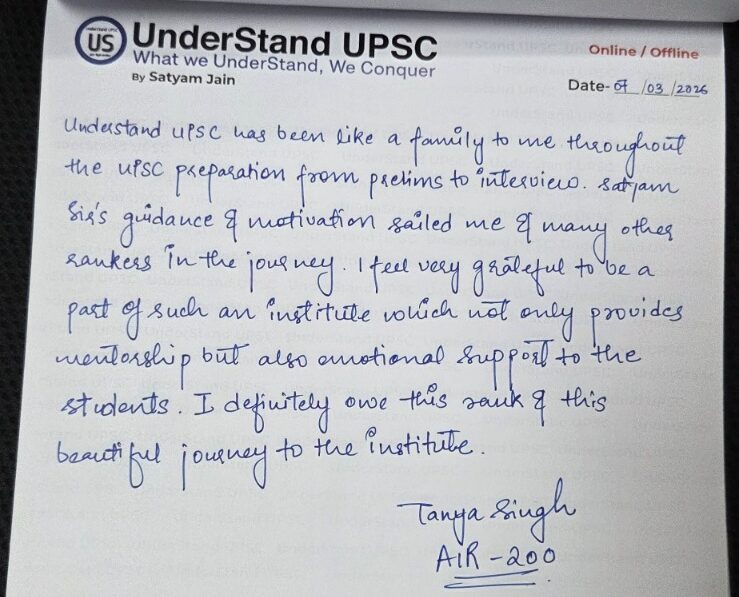 US
UnderStand UPSC
What we UnderStand, We Conquer
By Satyam Jain
Online / Offline
Date- 07/03/2026
Understand UPSC has been like a family to me throughout
the UPSC preparation from prelims to interview. Satyam
Sir's guidance & motivation sailed me & many other
rankers in the journey. I feel very grateful to be a
part of such an institute which not only provides
mentorship but also emotional support to the
students. I definitely owe this rank & this
beautiful journey to the institute.
Tanya Singh
AIR - 200